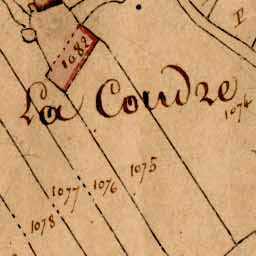 P
1682
La Coudre
1074
1075
1077 1076
1078